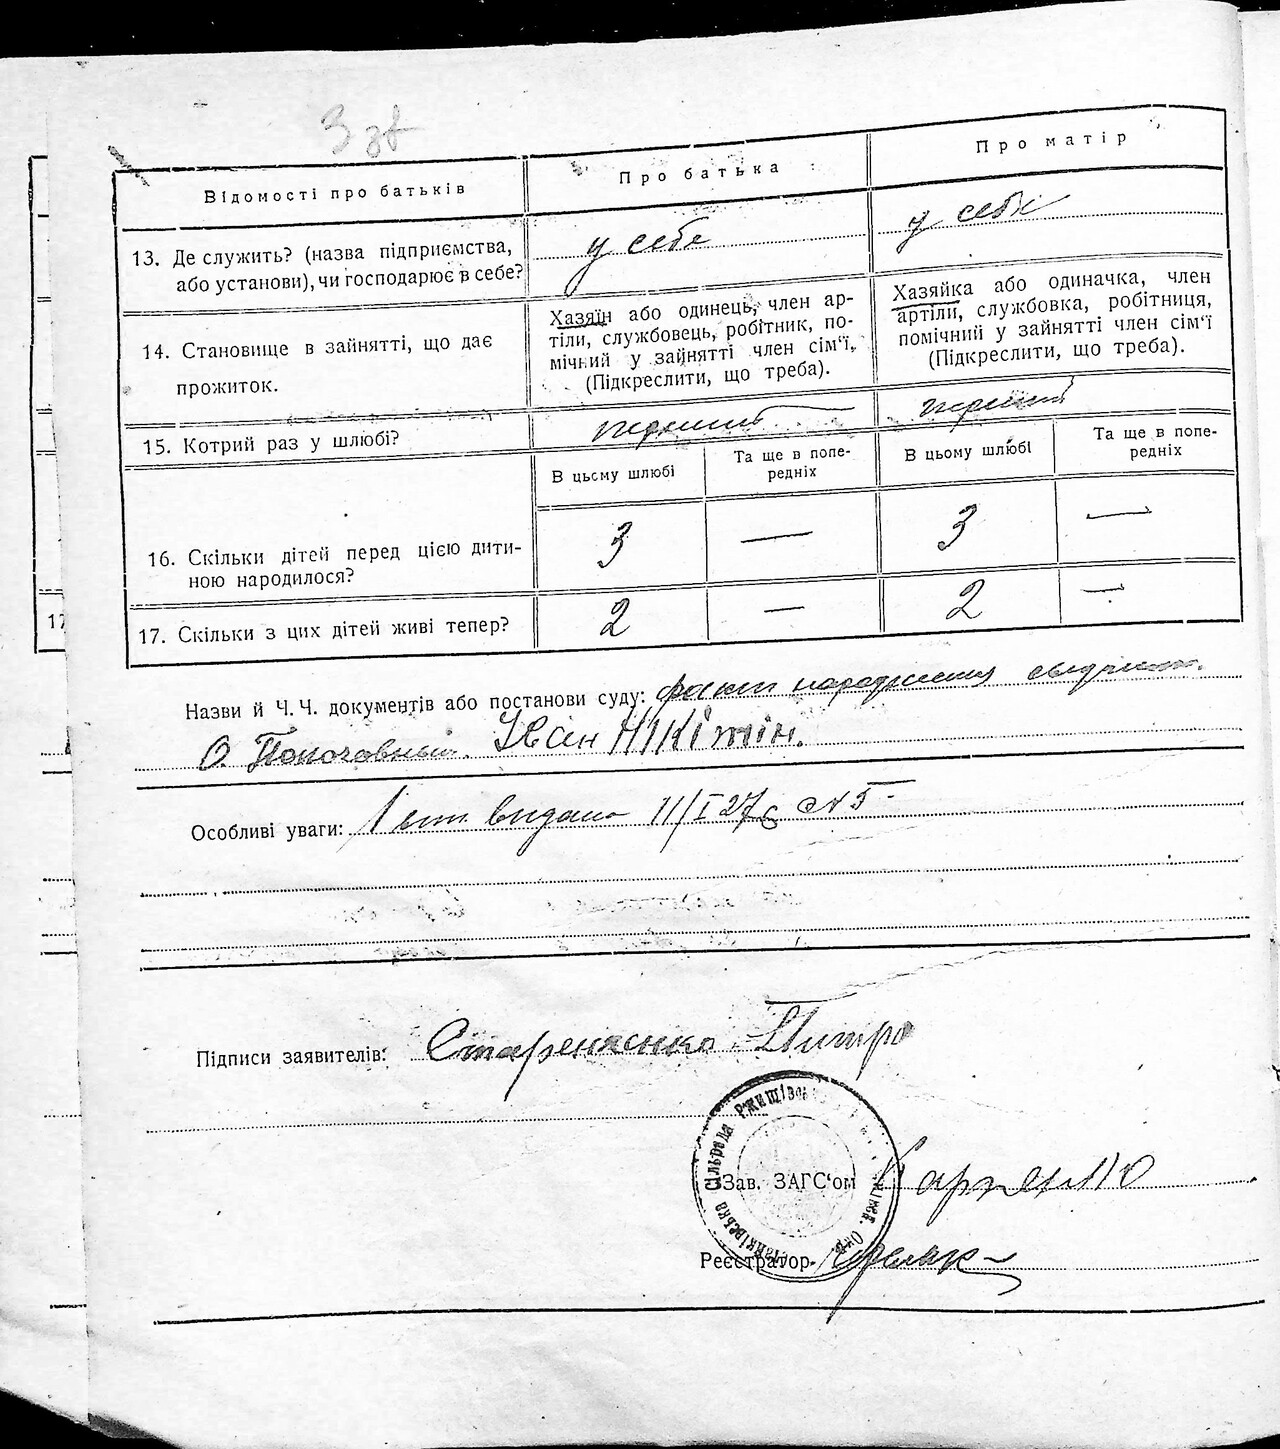 3 зв
Відомості про батьків
Про батька
Про матір
13. Де служить? (назва підприємства,
або установи), чи господарює в себе?
у себе
у себе
14. Становище в зайнятті, що дає
прожиток.
Хазяїн або одинець, член ар-
тіли, службовець, робітник, по-
мічний у зайнятті член сім'ї.
(Підкреслити, що треба).
Хазяйка або одиначка, член
артіли, службовка, робітниця,
помічний у зайнятті член сім'ї
(Підкреслити, що треба).
15. Котрий раз у шлюбі?
В цьому шлюбі
Та ще в попе-
редніх
В цьому шлюбі
Та ще в попе-
редніх
16. Скільки дітей перед цією дити-
ною народилося?
3 — 3 —
17. Скільки з цих дітей живі тепер?
2 — 2 —
Назви й Ч. Ч. документів або постанови суду: факт народження
О. Іван Нікітін.
Особливі уваги: 1 видано 11/I 27 № 5
Підписи заявителів: Петро
Зав. ЗАГС'ом
Реєстратор
сільрада Ржищівс
Окр.
17